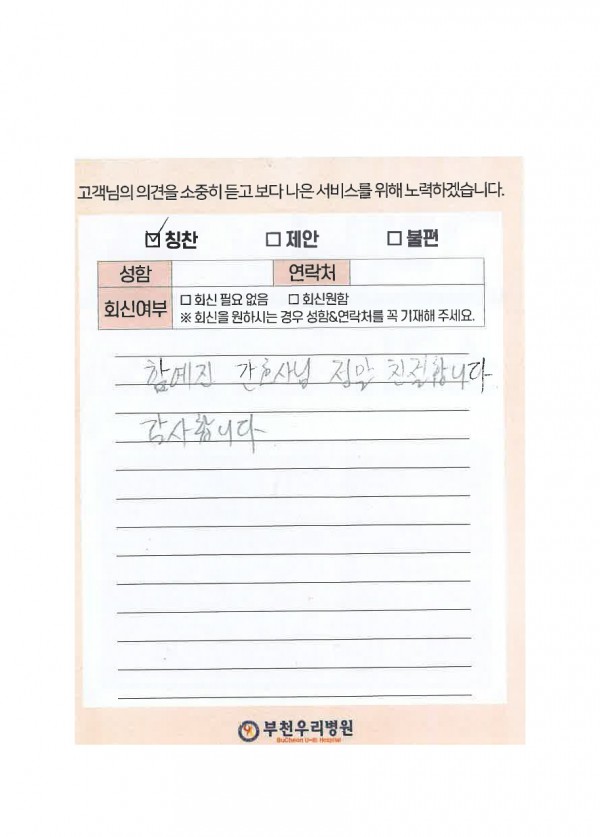 고객님의 의견을 소중히 듣고 보다 나은 서비스를 위해 노력하겠습니다.
☑ 칭찬 □ 제안 □ 불편
성함 연락처
회신여부 □ 회신 필요 없음 □ 회신원함
※ 회신을 원하시는 경우 성함&연락처를 꼭 기재해 주세요.
함예진 간호사님 정말 친절합니다.
감사합니다.
부천우리병원
BuCheon U-Ri Hospital